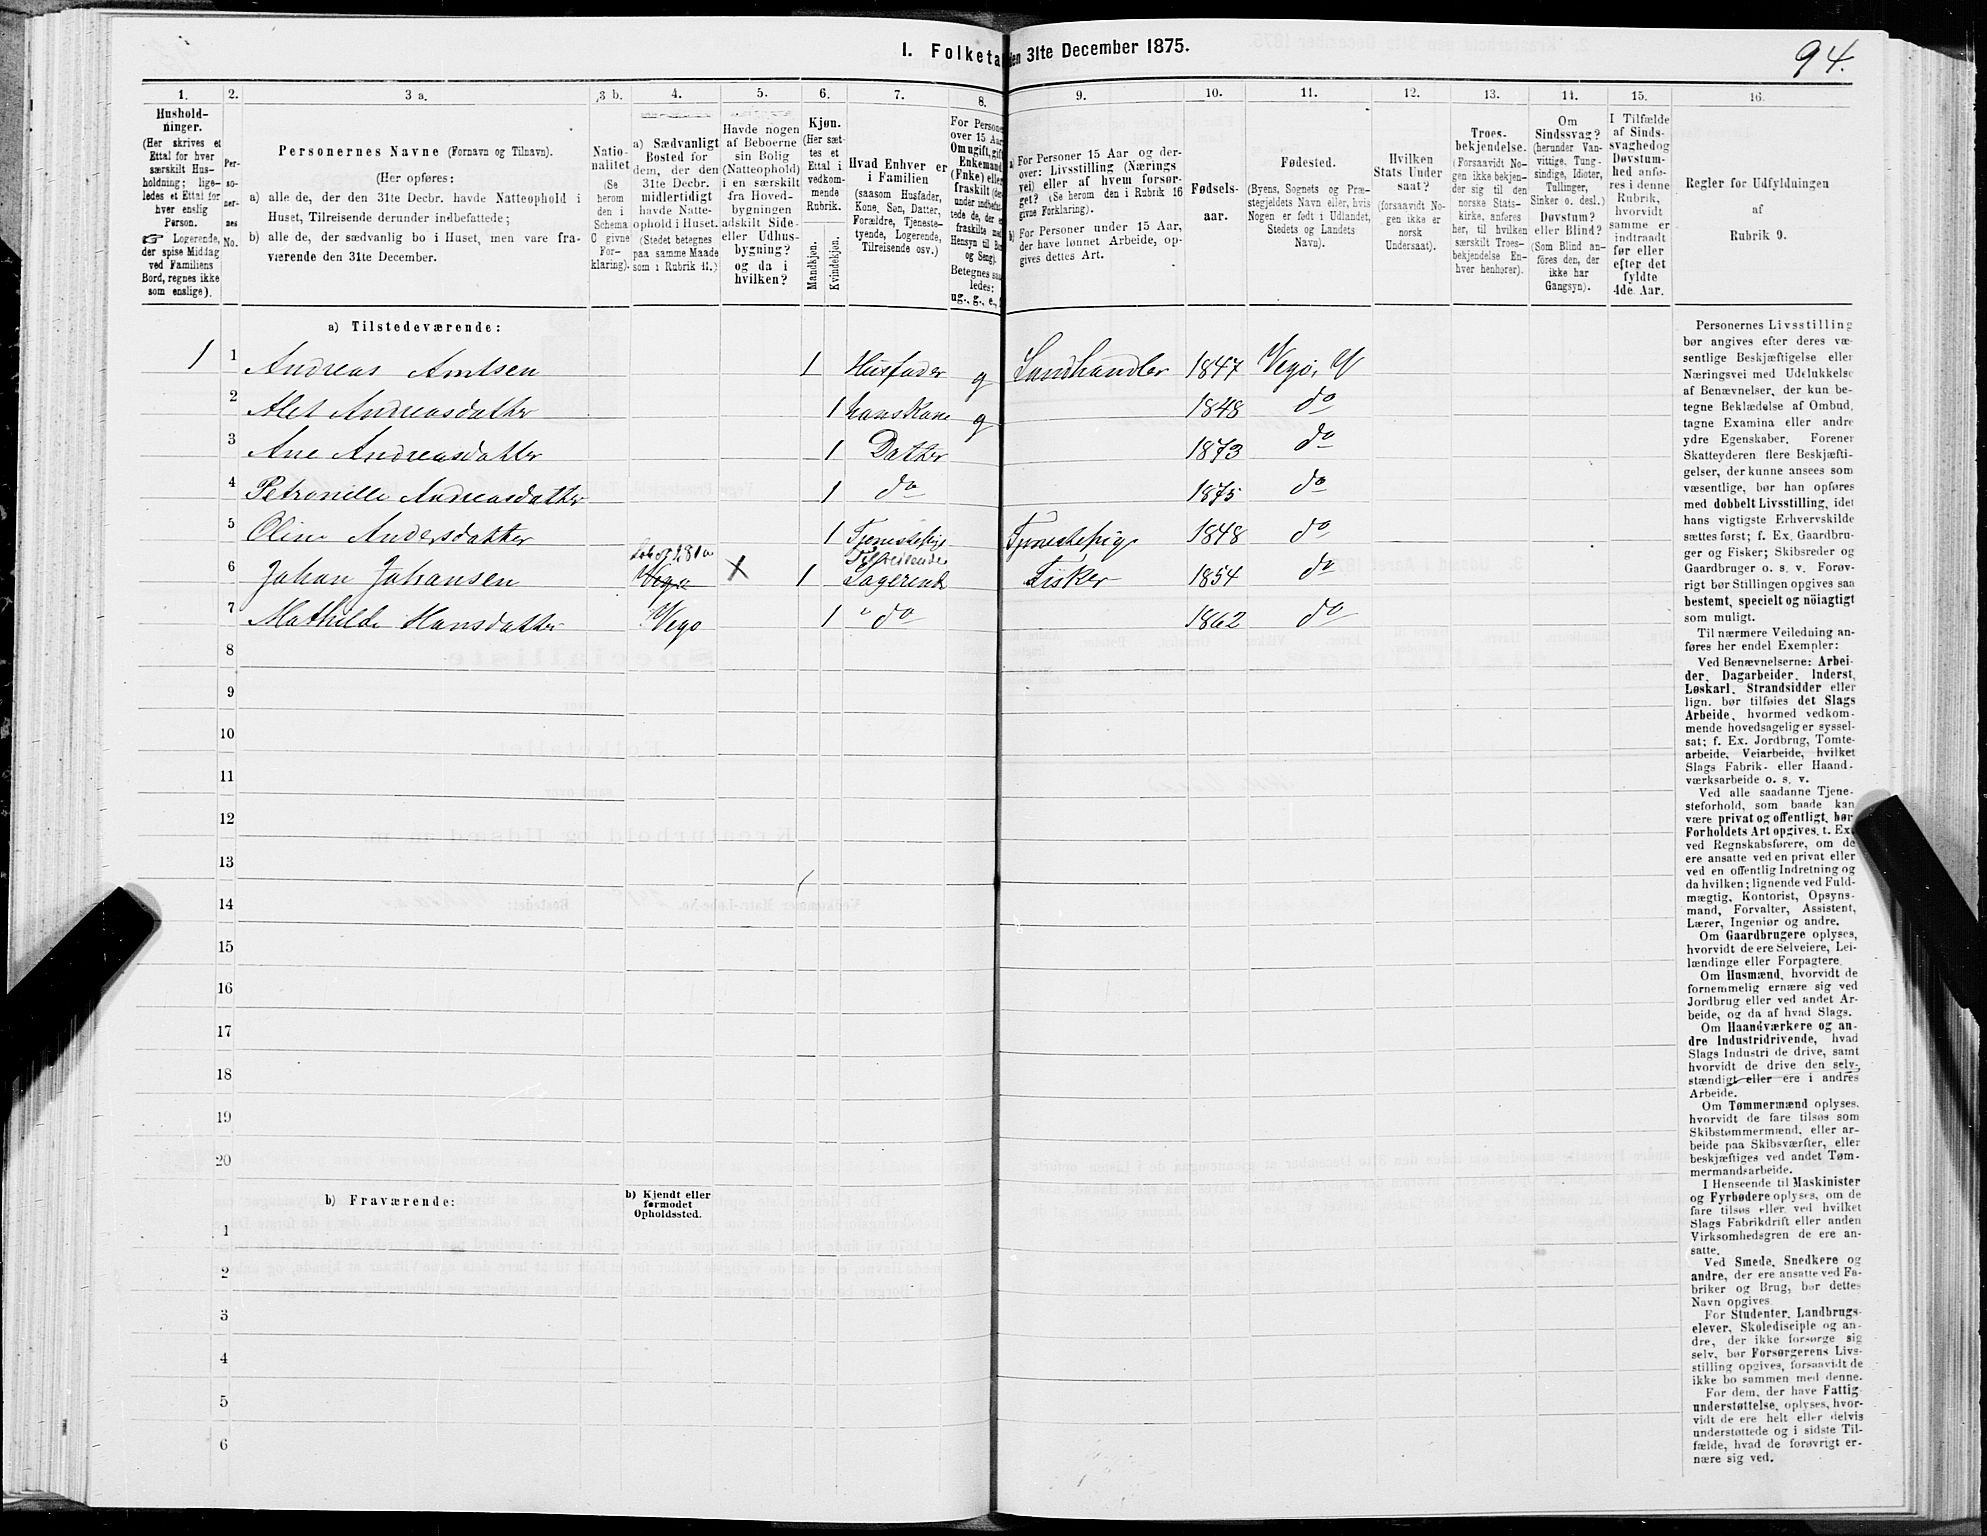 I. Folketal den 31te December 1875.
94.
1. 2. 3 a. 3 b. 4. 5. 6. 7. 8. 9. 10. 11. 12. 13. 14. 15. 16.
Hushold-
ninger.
(Her skrives et
Ettal for hver
særskilt Hus-
holdning; lige-
ledes et Ettal for
hver enslig
Person.
☞ Logerende,
der spise Middag
ved Familiens
Bord, regnes ikke
som enslige).
Per-
so-
ner-
nes
No.
Personernes Navne (Fornavn og Tilnavn).
(Her opføres:
a) alle de, der den 31te Decbr. havde Natteophold i
Huset, Tilreisende derunder indbefattede;
b) alle de, der sædvanlig bo i Huset, men vare fra-
værende den 31te December.
Natio-
nalitet
(Se
herom
den i
Schema
C givne
For-
klaring).
a) Sædvanligt
Bosted for
dem, der den
31te Decbr.
midlertidigt
havde Natte-
ophold i Huset.
(Stedet betegnes
paa samme Maade
som i Rubrik 11.)
Havde nogen
af Beboerne
sin Bolig
(Natteophold)
i en særskilt
fra Hoved-
bygningen
adskilt Side-
eller Udhus-
bygning?
og da i
hvilken?
Kjøn.
(Her sæt-
tes et
Ettal i
vedkom-
mende
Rubrik.
Mandkjøn.
Kvindekjøn.
Hvad Enhver er
i Familien
(saasom Husfader,
Kone, Søn, Datter,
Forældre, Tjeneste-
tyende, Logerende,
Tilreisende osv.)
For Persone
over 15 Aar
Om ugift, gift
Enkemand
(Enke) elle
fraskilt
Betegnes saa
ledes:
ug., g., e.,
a) For Personer 15 Aar og der-
over: Livsstilling (Nærings
vei) eller af hvem forsør-
get? (Se herom den i Rubrik 16
givne Forklaring).
b) For Personer under 15 Aar,
der have lønnet Arbeide, op-
gives dettes Art.
Fødsels-
aar.
Fødested.
(Byens, Sognets og Præ-
stegjeldets Navn eller, hvis
Nogen er født i Udlandet,
Stedets og Landets
Navn).
Hvilken
Stats Under
saat?
(forsaavidt No-
gen ikke er
norsk
Undersaat).
Troes-
bekjendelse.
(Forsaavidt No-
gen ikke bekjen-
der sig til den
norske Stats-
kirke, anføres
her, til hvilken
særskilt Troes-
bekjendelse En-
hver henhører).
Om
Sindssvag?
(herunder Van-
vittige, Tung-
sindige, Idioter,
Tullinger,
Sinker o. desl.)
Døvstum?
eller Blind?
(Som Blind an-
føres den, der
ikke har
Gangsyn).
I Tilfælde
af Sinds-
svaghed og
Døvstum-
hed anfø-
res i denne
Rubrik,
hvorvidt
samme er
indtraadt
før eller
efter det
fyldte
4de Aar.
Regler for Udfyldningen
af
Rubrik 9.
a) Tilstedeværende:
1 1 Andreas Arntsen 1 Husfader g Landhandler 1847 Vegø, Pf
2 Alet Andreasdatter 1 hans Kone g 1848 do
3 Ane Andreasdatter 1 Datter 1873 do
4 Petronille Andreasdatter 1 do 1875 do
5 Oline Andersdatter 1 Tjenestepig Tjenestepige 1848 do
Tilreisende
6 Johan Johansen Vegø X 1 Logerende Fisker 1854 do
7 Mathilde Hansdatter Vegø 1 " do 1862 do
8
9
10
11
12
13
14
15
16
17
18
19
20
b) Fraværende:
b) Kjendt eller
formodet
Opholdssted.
1
2
3
4
5
6
Personernes Livsstilling
bør angives efter deres væ-
sentlige Beskjæftigelse eller
Næringsvei med Udelukkelse
af Benævnelser, der kun be-
tegne Beklædelse af Ombud,
tagne Examina eller andre
ydre Egenskaber. Forener
Skatteyderen flere Beskjæfti-
gelser, der kunne ansees som
væsentlige, bør han opføres
med dobbelt Livsstilling, idet
hans vigtigste Erhvervskilde
sættes først; f. Ex. Gaardbru-
ger og Fisker; Skibsreder og
Gaardbruger o. s. v. Forøv-
rigt bør Stillingen opgives saa
bestemt, specielt og nøiagtigt
som muligt.
Til nærmere Veiledning an-
føres her endel Exempler:
Ved Benævnelserne: Arbei-
der, Dagarbeider, Inderst,
Løskarl, Strandsidder eller
lign. bør tilføies det Slags
Arbeide, hvormed vedkom-
mende hovedsagelig er syssel-
sat; f. Ex. Jordbrug, Tomte-
arbeide, Veiarbeide, hvilket
Slags Fabrik- eller Haand-
værksarbeide o. s. v.
Ved alle saadanne Tjene-
steforhold, som baade kan
være privat og offentligt, bør
Forholdets Art opgives, t. Ex.
ved Regnskabsførere, om de
ere ansatte ved en privat eller
ved en offentlig Indretning og
da hvilken; lignende ved Fuld-
mægtig, Kontorist, Opsyns-
mand, Forvalter, Assistent,
Lærer, Ingeniør og andre.
Om Gaardbrugere oplyses,
hvorvidt de ere Selveiere, Lei-
lændinge eller Forpagtere.
Om Husmænd, hvorvidt de
fornemmelig ernære sig ved
Jordbrug eller ved andet Ar-
beide, og da af hvad Slags.
Om Haandværkere og an-
dre Industridrivende, hvad
Slags Industri de drive, samt
hvorvidt de drive den selv-
stændigt eller ere i andres
Arbeide.
Om Tømmermænd oplyses,
hvorvidt de fare tilsøs som
Skibstømmermænd, eller ar-
beide paa Skibsværfter, eller
beskjæftiges ved andet Tøm-
mermandsarbeide.
I Henseende til Maskinister
og Fyrbødere oplyses, om de
fare tilsøs eller ved hvilket
Slags Fabrikdrift eller anden
Virksomhedsgren de ere an-
satte.
Ved Smede, Snedkere og
andre, der ere ansatte ved Fa-
briker og Brug, bør dettes
Navn opgives.
For Studenter, Landbrugs-
elever, Skoledisciple og an-
dre, der ikke forsørge sig
selv, bør Forsørgerens Livs-
stilling opgives, forsaavidt de
ikke bo sammen med denne.
For dem, der have Fattig-
understøttelse, oplyses, hvor-
vidt de ere helt eller delvis
understøttede og i sidste Til-
fælde, hvad de forøvrigt er-
nære sig ved.